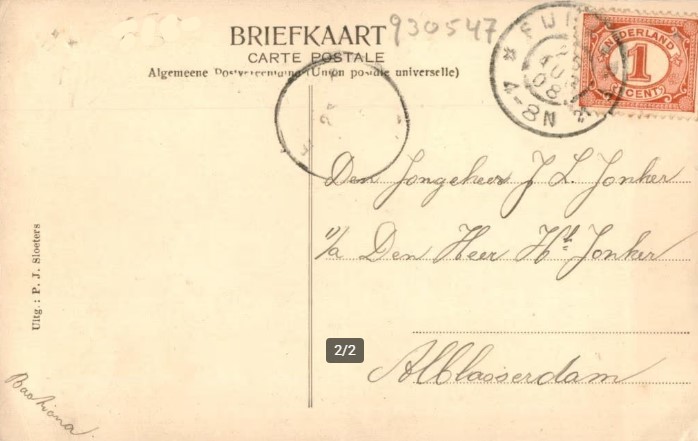 BRIEFKAART
930547
CARTE POSTALE
Algemeene Postvereeniging (Union postale universelle)
FIJ
AU
08
4-8N
NEDERLAND
1
CENT
Den Jongeheer J L Jonker
1/a Den Heer H Jonker
Alblasserdam
Uitg.: P. J. Sloeters
Bastiana
2/2